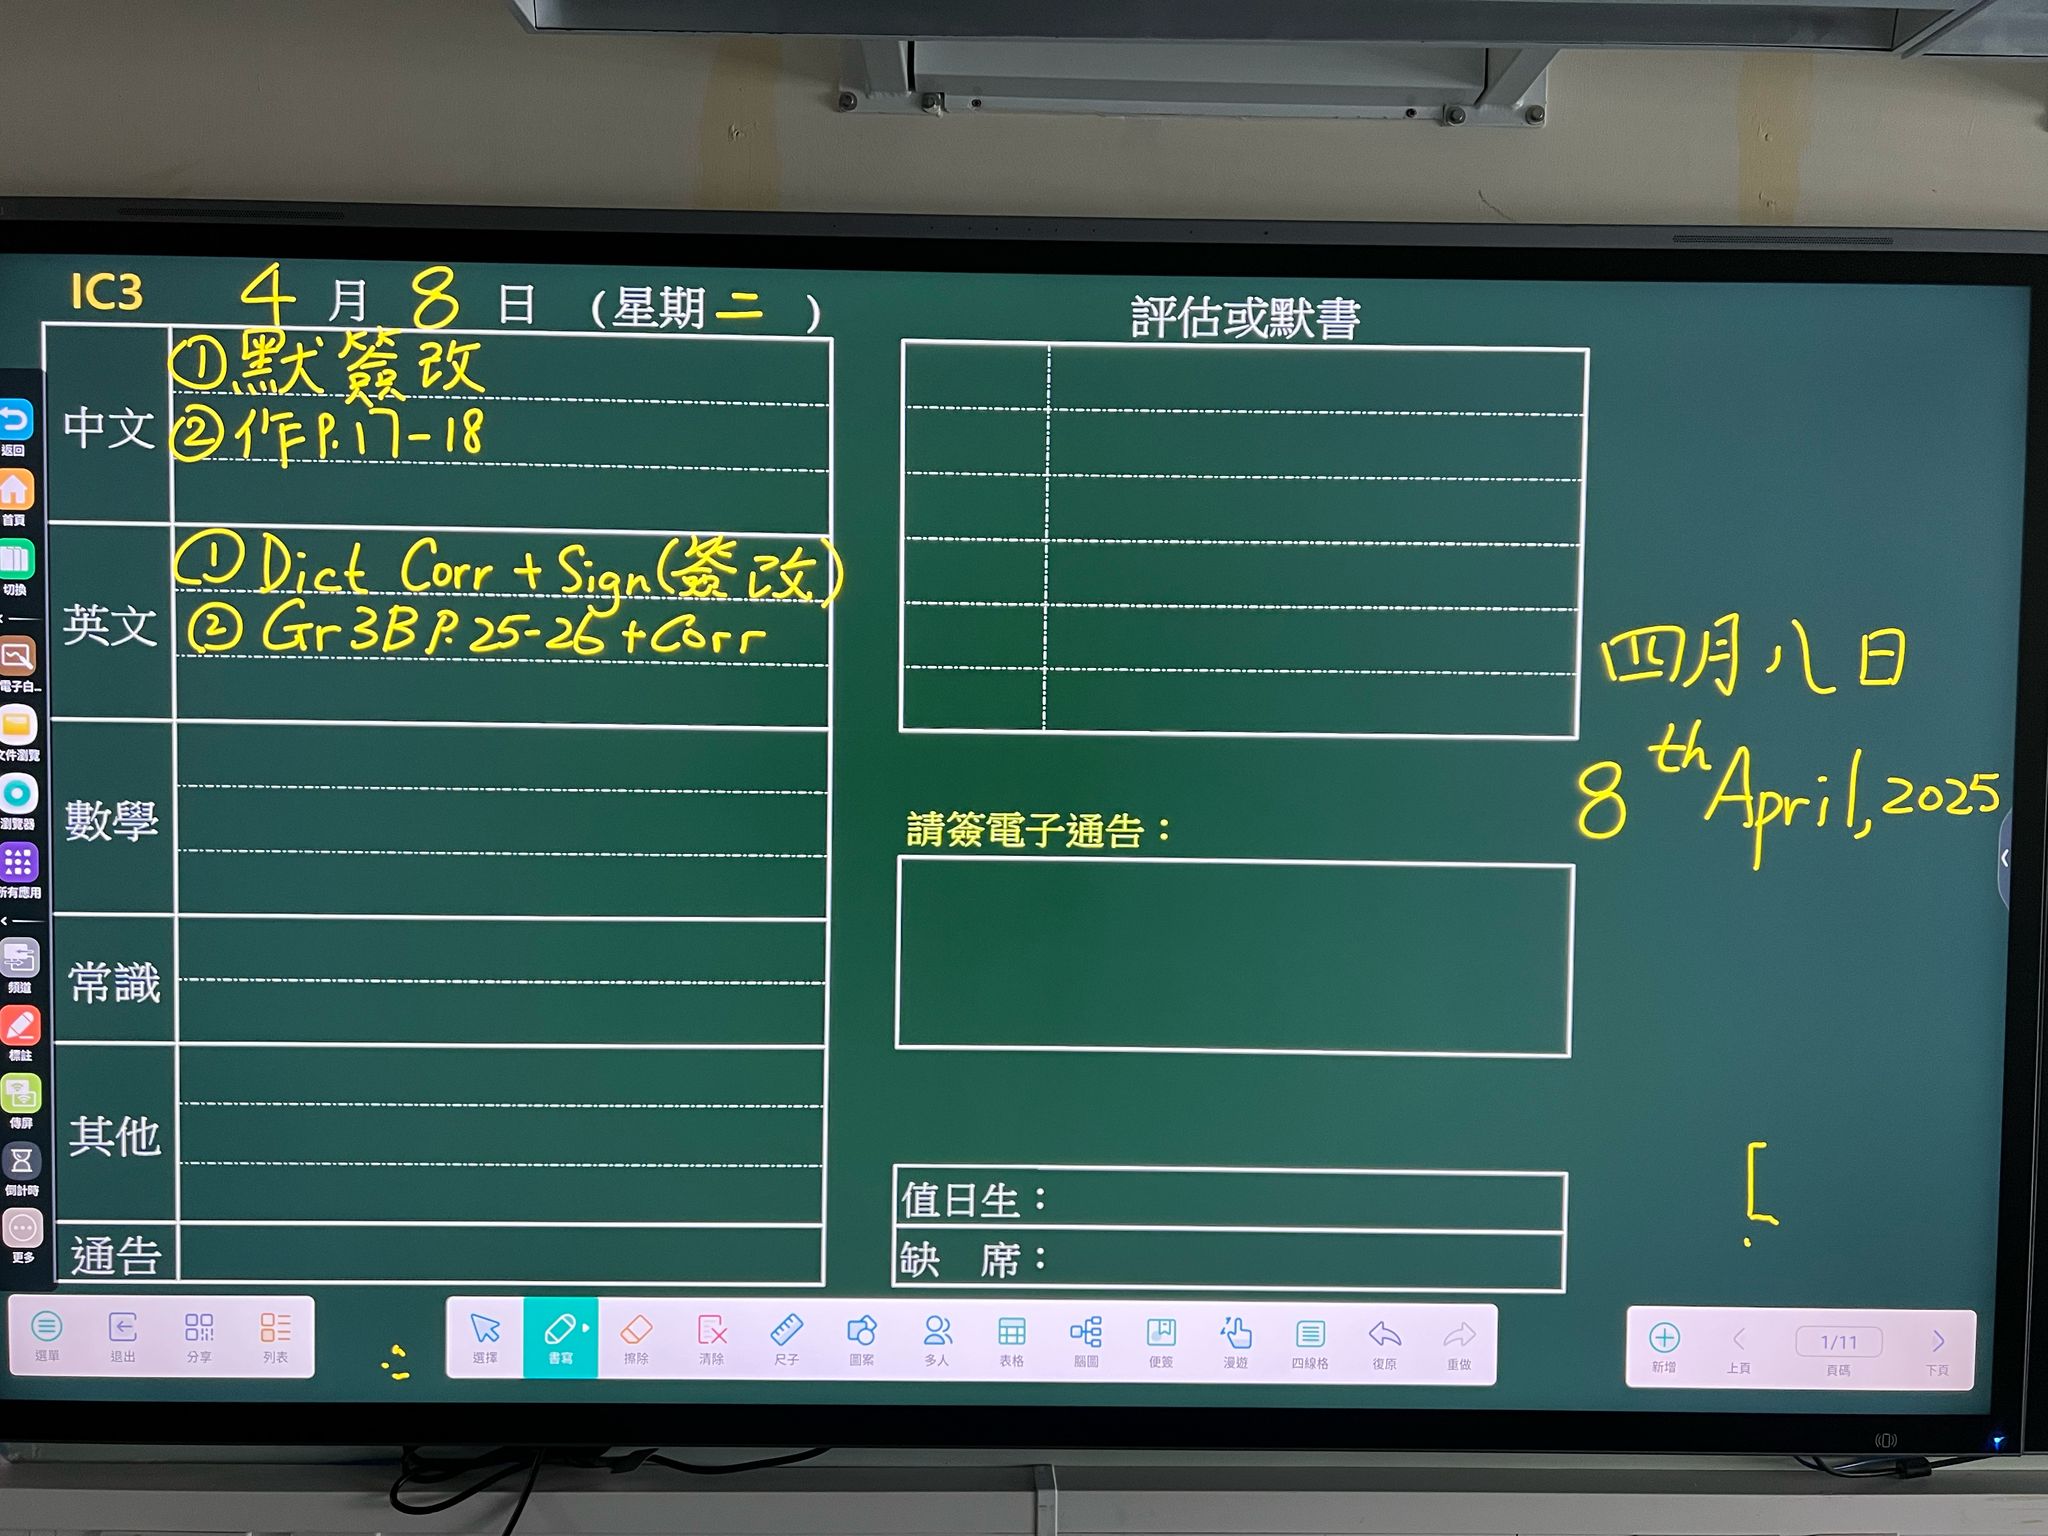 IC3 4 月 8 日 (星期二)
中文
①默簽改
②作P.17-18
英文
①Dict Corr + Sign(簽改)
②Gr3B P.25-26+Corr
數學
常識
其他
通告
評估或默書
請簽電子通告：
值日生：
缺 席：
四月八日
8th April, 2025
返回
首頁
切換
電子白...
文件瀏覽
瀏覽器
所有應用
頻道
標註
傳屏
倒計時
更多
選單 退出 分享 列表
選擇 書寫 擦除 清除 尺子 圖案 多人 表格 腦圖 便簽 漫遊 四線格 復原 重做
新增 上頁 1/11 頁碼 下頁